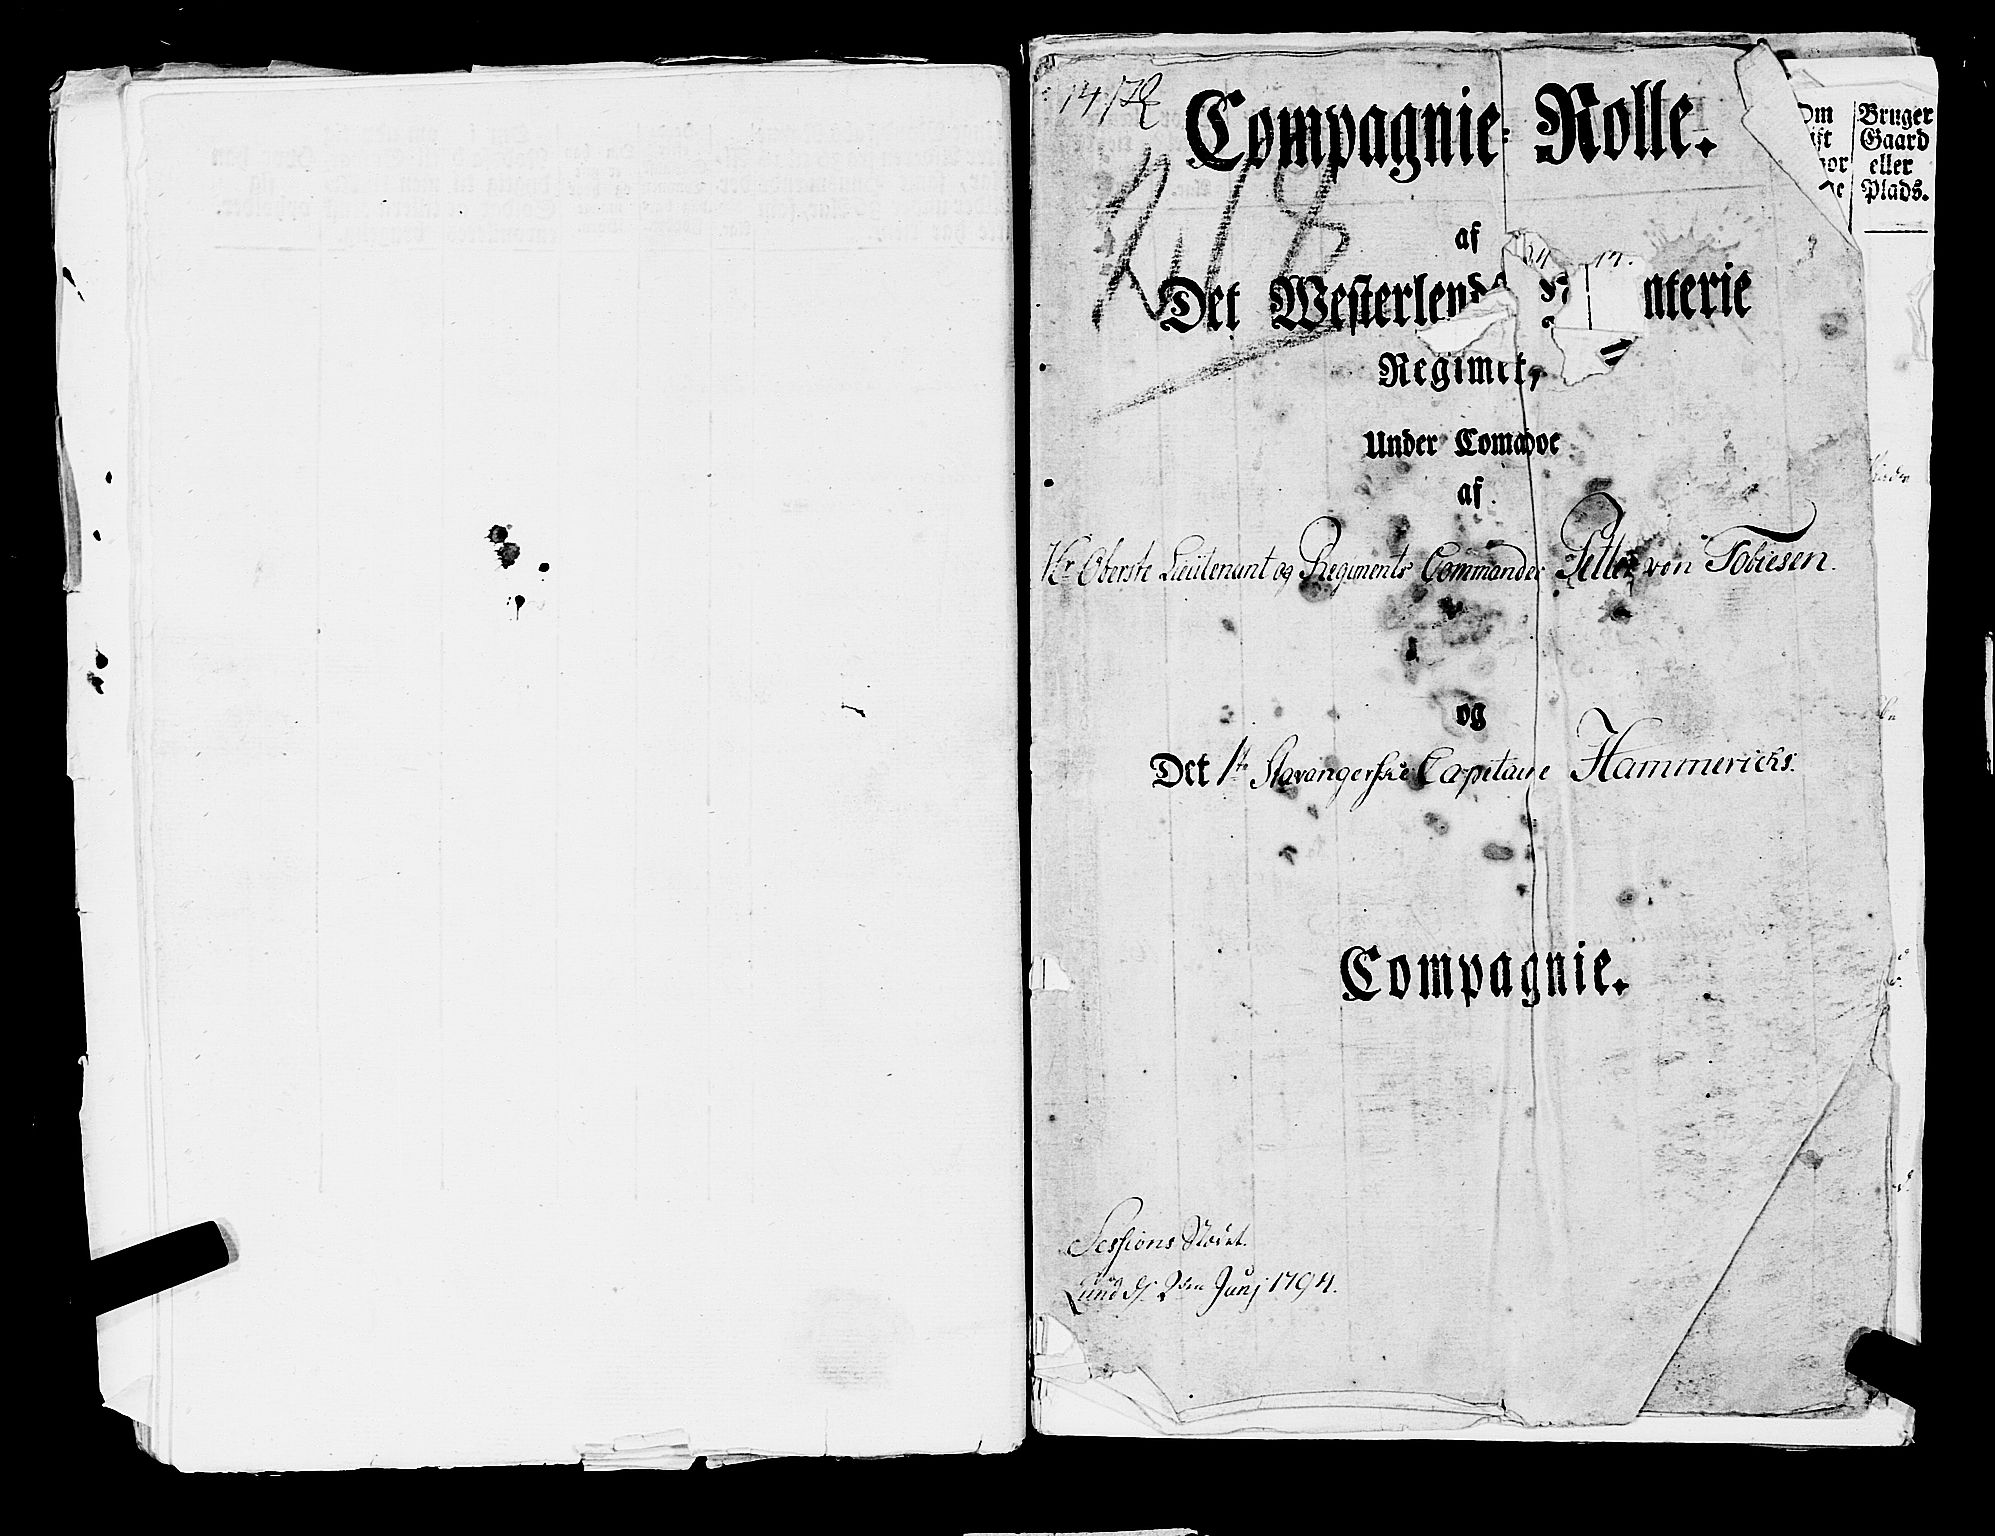 Compagnie-Rolle.
af
Det Westerlend nterie
Regimet,
Under Comādoe
af
Hr. Oberste Lieutenant og Regiments Commandeur Petter von Tobiesen.
og
Det 1te Stavangerske Capitaine Hammerichs.
Compagnie.
Sessions
Lund d. 2den Junj 1794.
Bruger
Gaard
eller
Plads.